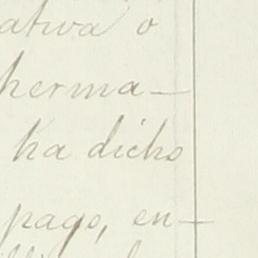 ativa o
herma-
ha dicho
pago, en-